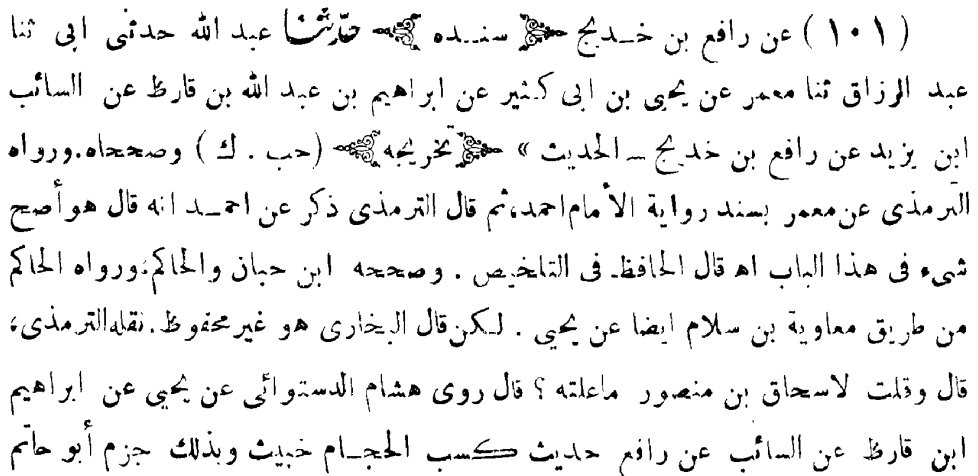 ( ١٠١ ) عن رافع بن خديج ﴿ سنده ﴾ حدثنا عبد الله حدثنى ابى ثنا
عبد الرزاق ثنا معمر عن يحيى بن ابى كثير عن ابراهيم بن عبد الله بن قارظ عن السائب
ابن يزيد عن رافع بن خديج ــ الحديث » ﴿ تخريجه ﴾ (حب . ك ) وصححاه.ورواه
الترمذى عن معمر بسند رواية الأمام احمد،ثم قال الترمذى ذكر عن احمد انه قال هو أصح
شىء فى هذا الباب اه قال الحافظ فى التلخيص . وصححه ابن حبان والحاكم،ورواه الحاكم
من طريق معاوية بن سلام ايضا عن يحيى . لكن قال البخارى هو غير محفوظ.نقله الترمذى،
قال وقلت لاسحاق بن منصور ماعلته ؟ قال روى هشام الدستوائى عن يحيى عن ابراهيم
ابن قارظ عن السائب عن رافع حديث كسب الحجام خبيث وبذلك جزم أبو حاتم